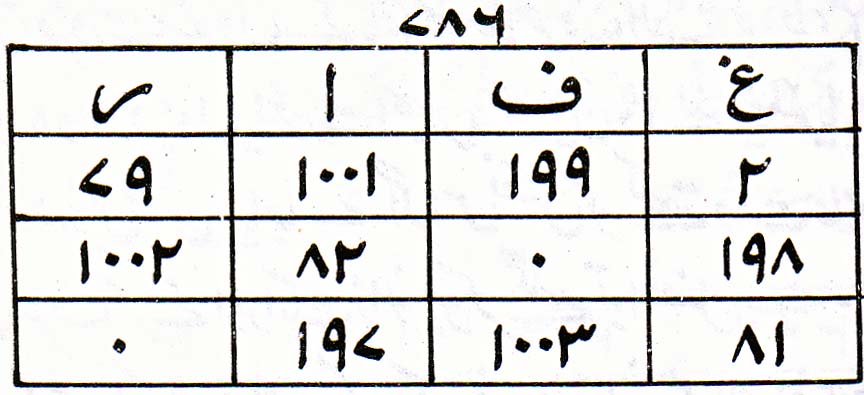 ۷۸۶
غ ف ا ر
۲ ۱۹۹ ۱۰۰۱ ۷۹
۱۹۸ ۰ ۸۲ ۱۰۰۲
۸۱ ۱۰۰۳ ۱۹۷ ۰